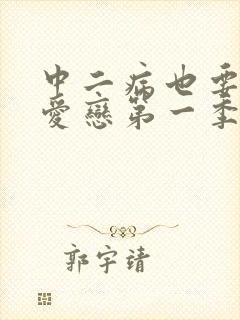 中二病也要
愛戀第一季
郭宇靖